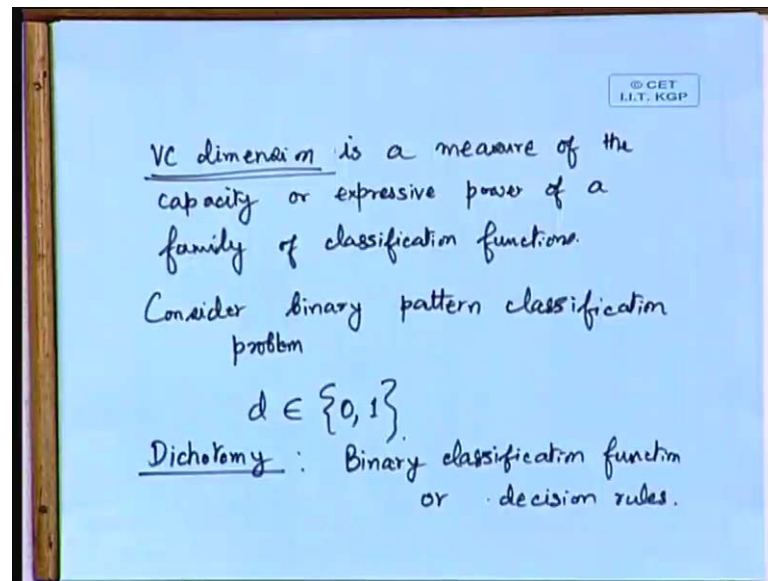 © CET
I.I.T. KGP
VC dimension is a measure of the
capacity or expressive power of a
family of classification functions.
Consider binary pattern classification
problm
d ∈ {0, 1}.
Dichotomy : Binary classification function
or decision rules.